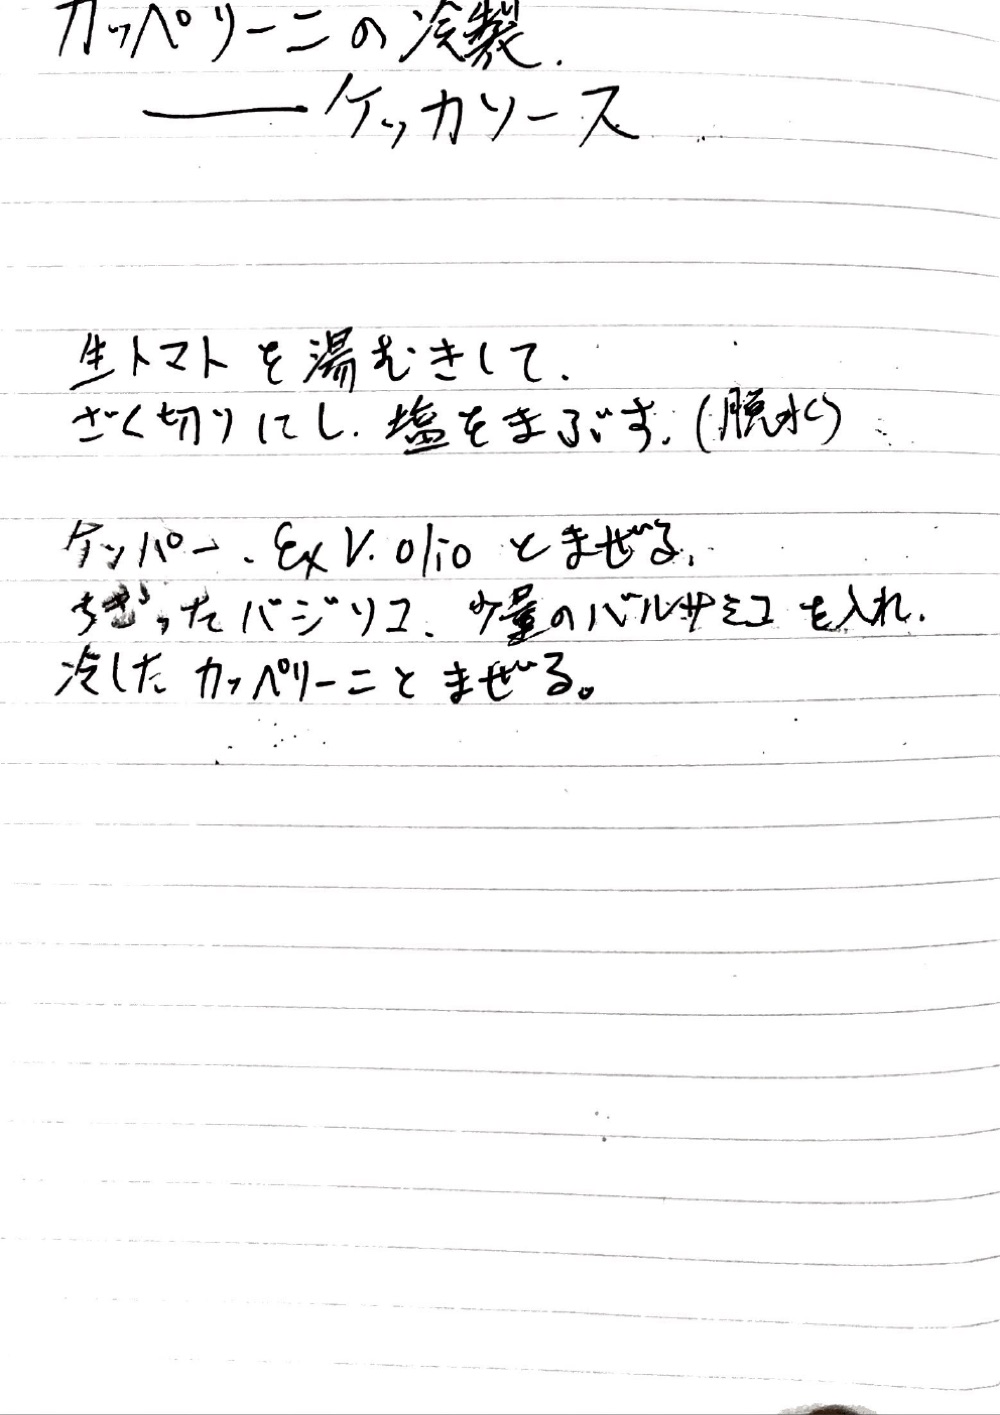 カッペリーニの冷製.
――ケッカソース
生トマトを湯むきして.
ざく切りにし.塩をまぶす.(脱水)
ケッパー、Ex V. olio とまぜる.
ちぎったバジリコ、少量のバルサミコを入れ.
冷したカッペリーニとまぜる。